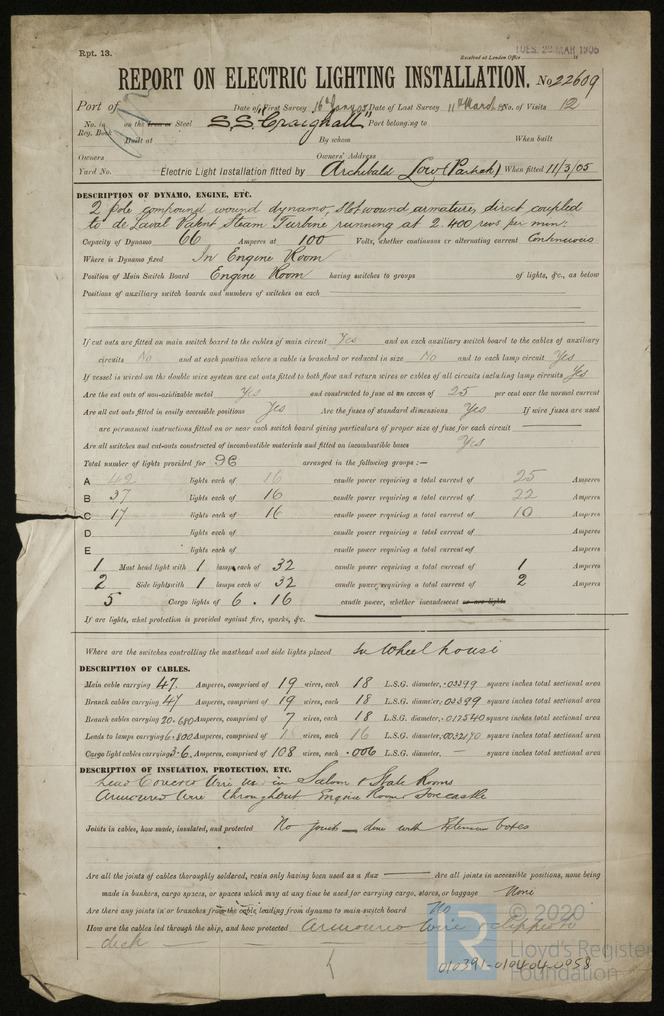 Rpt. 13.
TUES. 28 MAR 1905
Received at London Office
REPORT ON ELECTRIC LIGHTING INSTALLATION. No 22609
Port of Date of First Survey 16th Jany Date of Last Survey 11th March No. of Visits 12
No. in Reg. Book on the Iron or Steel S.S. "Craighall" Port belonging to
Built at By whom When built
Owners Owners' Address
Yard No. Electric Light Installation fitted by Archibald Low (Partick) When fitted 11/3/05
DESCRIPTION OF DYNAMO, ENGINE, ETC.
2 pole compound wound dynamo, slot wound armature, direct coupled
to de Laval Patent Steam Turbine running at 2.400 revs per min.
Capacity of Dynamo 66 Amperes at 100 Volts, whether continuous or alternating current Continuous
Where is Dynamo fixed In Engine Room
Position of Main Switch Board Engine Room having switches to groups of lights, &c., as below
Positions of auxiliary switch boards and numbers of switches on each
If cut outs are fitted on main switch board to the cables of main circuit Yes and on each auxiliary switch board to the cables of auxiliary
circuits No and at each position where a cable is branched or reduced in size No and to each lamp circuit Yes
If vessel is wired on the double wire system are cut outs fitted to both flow and return wires or cables of all circuits including lamp circuits Yes
Are the cut outs of non-oxidizable metal Yes and constructed to fuse at an excess of 25 per cent over the normal current
Are all cut outs fitted in easily accessible positions Yes Are the fuses of standard dimensions Yes If wire fuses are used
are permanent instructions fitted on or near each switch board giving particulars of proper size of fuse for each circuit
Are all switches and cut-outs constructed of incombustible materials and fitted on incombustible bases Yes
Total number of lights provided for 96 arranged in the following groups :—
A 42 lights each of 16 candle power requiring a total current of 25 Amperes
B 37 lights each of 16 candle power requiring a total current of 22 Amperes
C 17 lights each of 16 candle power requiring a total current of 10 Amperes
D lights each of candle power requiring a total current of Amperes
E lights each of candle power requiring a total current of Amperes
1 Mast head light with 1 lamps each of 32 candle power requiring a total current of 1 Amperes
2 Side lights with 1 lamps each of 32 candle power requiring a total current of 2 Amperes
5 Cargo lights of 6 . 16 candle power, whether incandescent or arc lights
If arc lights, what protection is provided against fire, sparks, &c.
Where are the switches controlling the masthead and side lights placed In Wheelhouse
DESCRIPTION OF CABLES.
Main cable carrying 47. Amperes, comprised of 19 wires, each 18 L.S.G. diameter, .03399 square inches total sectional area
Branch cables carrying 47 Amperes, comprised of 19 wires, each 18 L.S.G. diameter, .03399 square inches total sectional area
Branch cables carrying 20.680 Amperes, comprised of 7 wires, each 18 L.S.G. diameter, .017540 square inches total sectional area
Leads to lamps carrying 6.800 Amperes, comprised of wires, each 16 L.S.G. diameter, .0032170 square inches total sectional area
Cargo light cables carrying 3.6. Amperes, comprised of 108 wires, each .006 L.S.G. diameter, — square inches total sectional area
DESCRIPTION OF INSULATION, PROTECTION, ETC.
Lead Covered Wire in Saloon & State Rooms
Armoured Wire throughout Engine Room & Forecastle
Joints in cables, how made, insulated, and protected No joints — done with Extension boxes
Are all the joints of cables thoroughly soldered, resin only having been used as a flux — Are all joints in accessible positions, none being
made in bunkers, cargo spaces, or spaces which may at any time be used for carrying cargo, stores, or baggage None
Are there any joints in or branches from the cable leading from dynamo to main switch board No
How are the cables led through the ship, and how protected Armoured Wire clipped to
deck
© 2020
Lloyd's Register
Foundation
010391-010404-0058